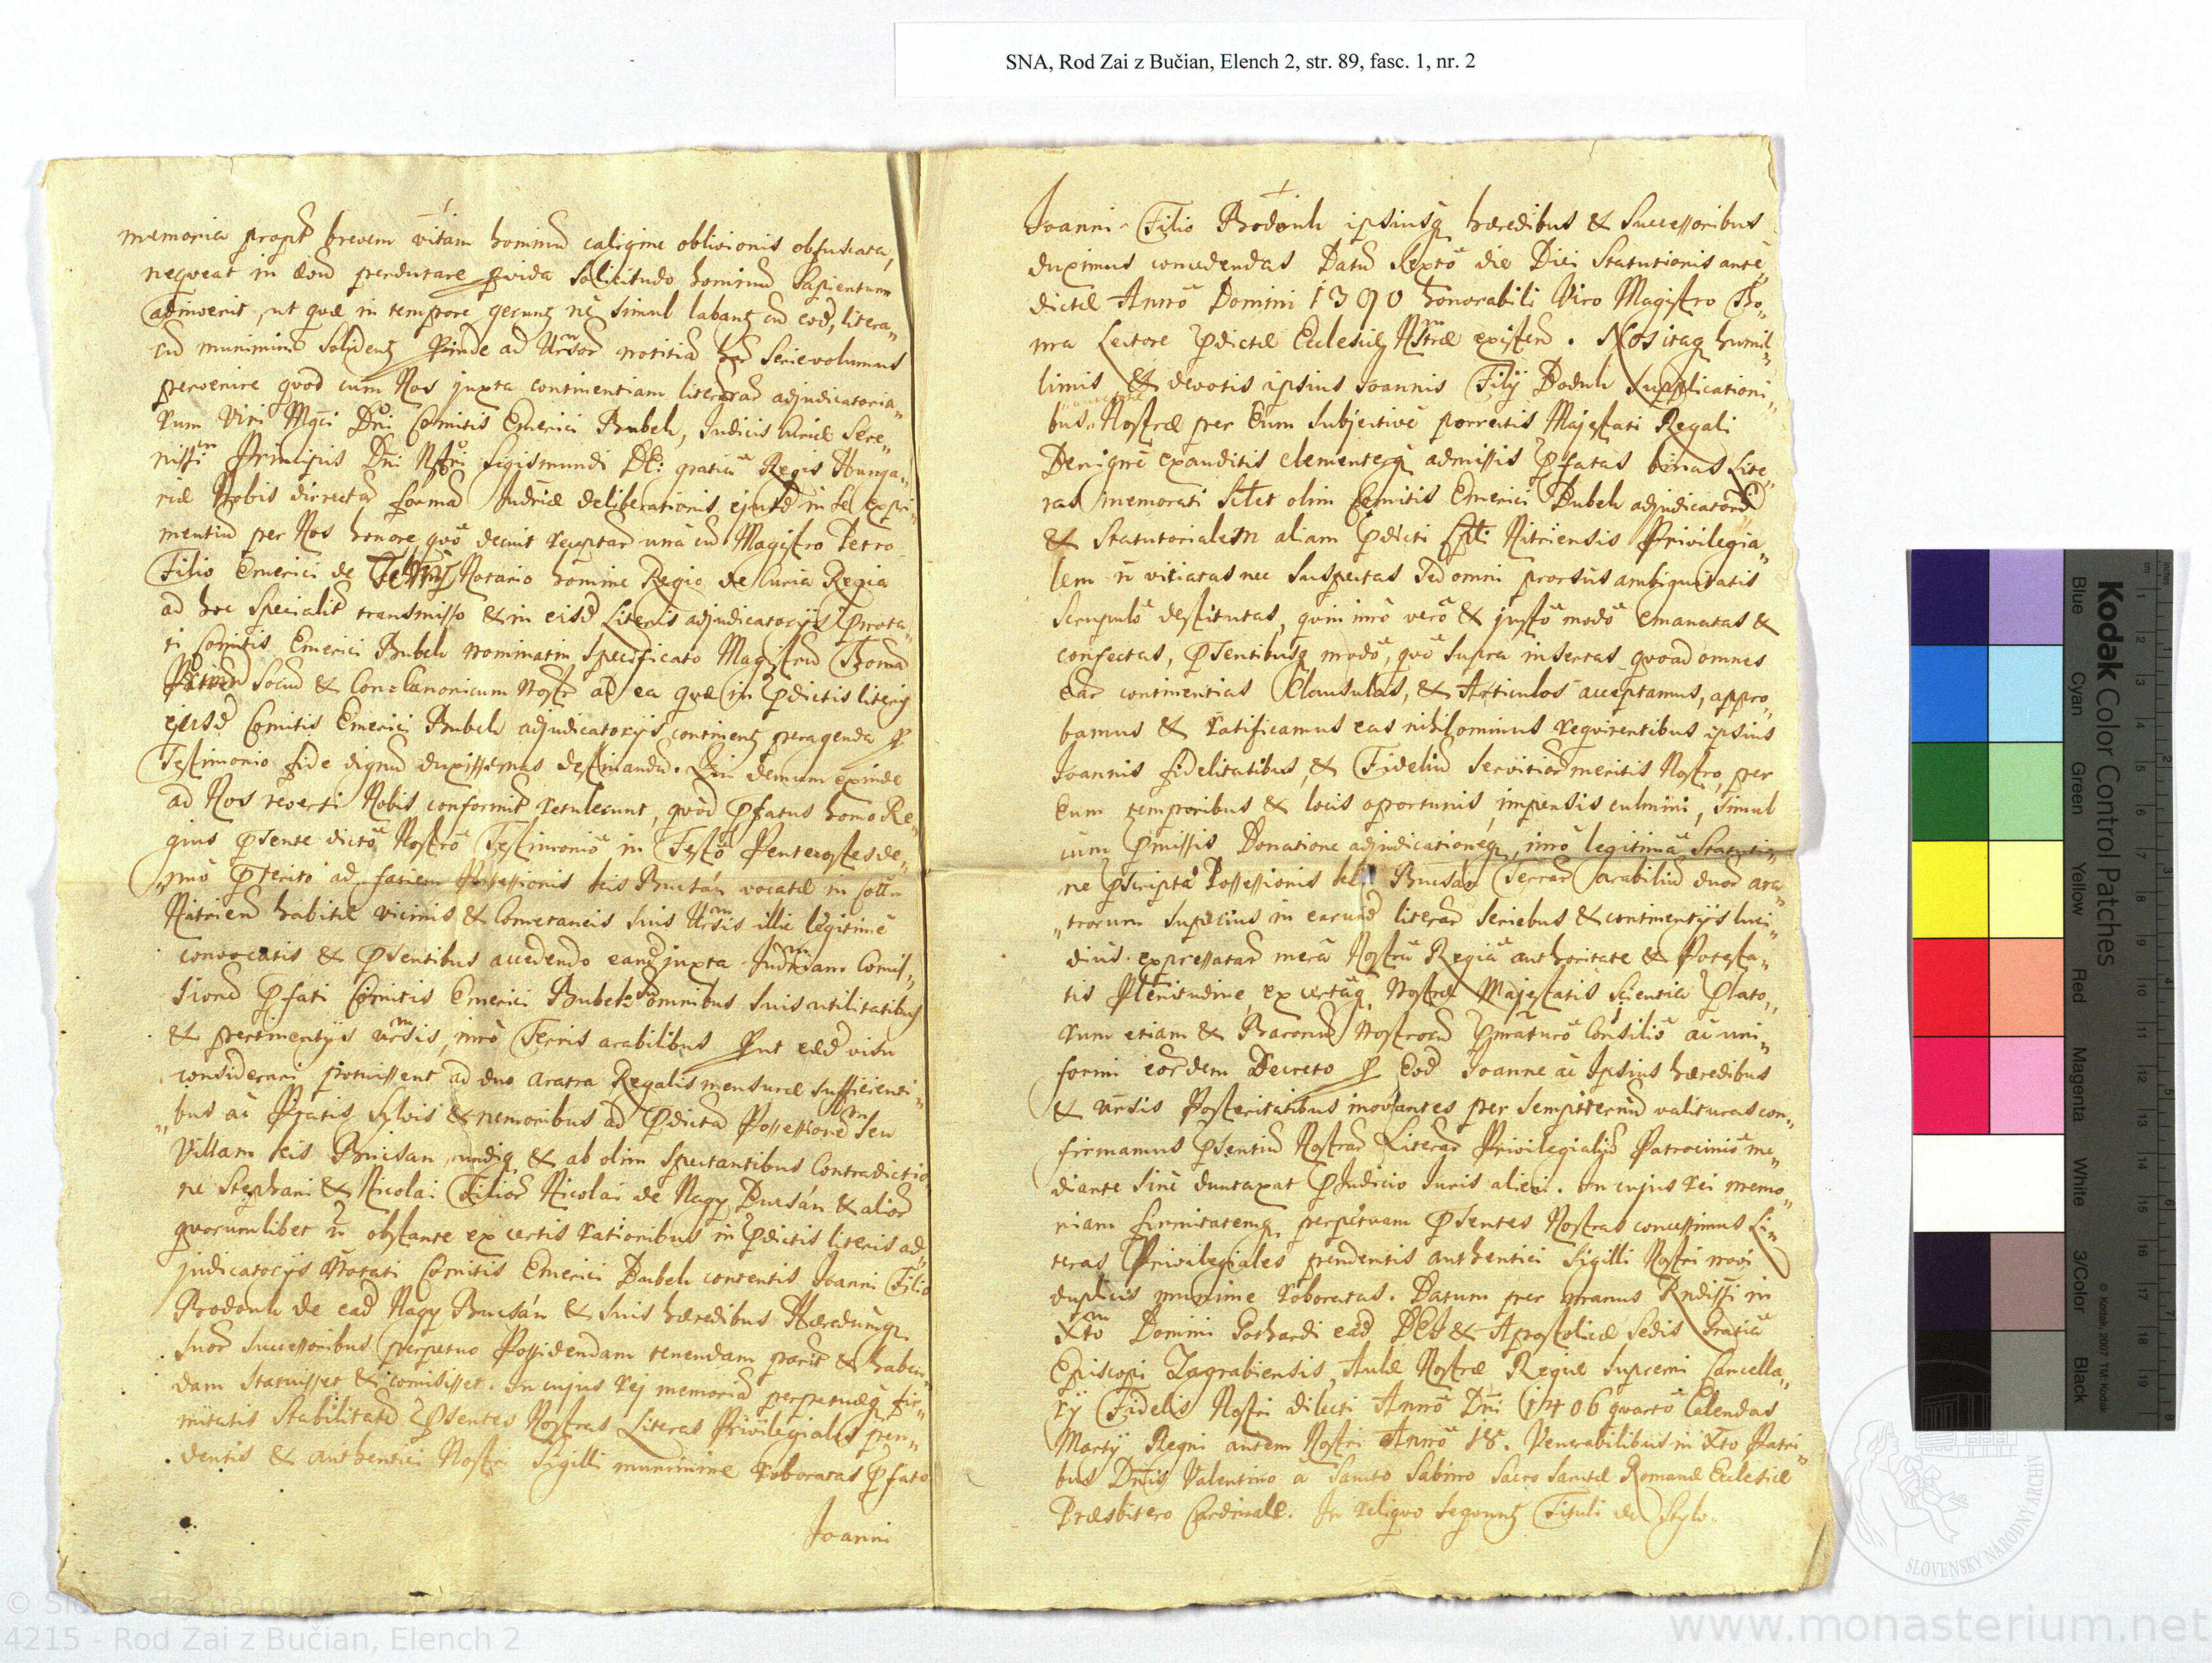 SNA, Rod Zai z Bučian, Elench 2, str. 89, fasc. 1, nr. 2
memoria propt brevem vitam hominũ caligine oblivionis obfuscata,
neqveat in ævũ perdurare provida Solicitudo hominũ Sapientum
adinvenit, ut qvæ in tempore gerunt nè simul labant cũ eod, litera„
rũ munimine solident Proinde ad Ursor notitiã har Serie volumus
pervenire qvod cum Nos juxta continentiam literarũ adjudicatoria„
rum Viri Mgci Dni Comitis Emerici Bubek, Judicis Curiæ Sere„
nissi Principis Dni Nostri Sigismundi Dei gratiâ Regis Hunga„
riæ Nobis directã formã Judriæ deliberationis ejusd in se expri„
mentiũ per Nos honore qvô decuit receptar unà cũ Magistro Petro
Filio Emerici de Notario homine Regio de Curia Regia
ad hoc Specialit transmisso & in eisd Literis adjudicatorijs prænota„
ti Comitis Emerici Bubek nominatim Specificato Magistrũ Thomã
Socium & Con=Canonicum Nostr ad ea qvæ in prædictis literis
ejusd Comitis Emerici Bubek adjudicatorijs continent peragenda pro
Testimonio fide dignũ duxissemus destinandũ. Qui demum exinde
ad Nos reversi Nobis conformit retulerunt, qvod præfatus homo Re„
gius præsente dictô Nostrô Testimoniô in Festô Pentecostes de„
„mũ præterito ad faciem Possessionis Kis Bucsán vocatæ in Cottu
Nitrien habitæ vicinis & Cometaneis suis Ursis illic legitimè
convocatis & præsentibus accedendo eand juxta Judriam Comis„
sionẽ præfati Comitis Emerici Bubek omnibus suis utilitatibus
& pertinentijs ursis, imò Terris arabilibus Prout eæd visu
considerari potuissent ad duo aratra Regalis mensuræ sufficienti„
„bus ac Pratis, Sylvis & nemoribus ad prædictã Possessionẽ seu
Villam Kis Bucsan, undiq & ab olim spectantibus Contradictio
ne Stephani & Nicolai Filior Nicolai de Nagy Bucsán & alior
qvorumlibet ñ obstante ex certis rationibus in prædictis literis ad„
judicatorijs Notati Comitis Emerici Bubek contentis Joanni Filio
Brodonk de ead Nagy Bucsán & suis hæredibus Hæredumq
Suor Successoribus perpetuo Possidendam tenendam parit & haben„
dam Statuisset & comisisset. In cujus rej memoriã perpetuæq fir„
mitatis Stabilitatẽ Præsentes Nostras Literas Privilegiales pen„
dentis & authentici Nostri Sigilli munimine roboratas præfato
Joanni
Joanni Filio Brodonk ipsiusq hæredibus & Successoribus
duximus concedendas Datũ sextô die Diei Statutionis ante„
dictæ Annô Domini 1390 honorabili Viro Magistro Tho„
ma Lectore prædictæ Ecclesiæ Nstræ existen. Nos itaq humil„
limis & devotis ipsius Joannis Filij Boduk supplicationi„
bus Nostræ per Eum Subjective porrectis Majestati Regali
Benignè exauditis clementerq admissis præfatas binas Lite„
ras memorati Scilicet olim Comitis Emerici Bubek adjudicatoriã
& Statutorialem aliam prædicti Cpli Nitriensis Privilegia„
lem ñ vitiatas nec suspectas Sed omni prorsus ambiguitatis
scrupulô destitutas, qvin imò verô & justô modô emanatas &
confectas, præsentibusq modô, qvô supra insertas qvoad omnes
ear continentias Clausulas, & Articulos acceptamus, appro„
bamus & ratificamus eas nihilominus reqvirentibus ipsius
Joannis fidelitatibus, & Fideliũ servitior meritis Nostro, per
Eum temporibus & locis oportunis, impensis culmini, simul
cum præmissis Donatione adjudicationeq, imò legitimâ Statuti„
ne præscriptæ Possessionis Kis Bucsan Terrar arabiliũ duor ara„
„trorum superius in earund literar seriebus & continentijs luci„
dius expressatar merâ Nostrâ Regiâ authoritate & Potesta„
tis Plenitudine, ex certâq Nostræ Majestatis scientia Prælato„
rum etiam & Baronũ Nostrorũ præmaturô Consiliô ac uni„
formi eordem Decreto pro Eod Joanne ac Ipsius hæredibus
& Ursis Posteritatibus inovantes per sempiternũ valituras con„
firmamus præsentiũ Nostrar Literar Privilegialiũ Patrociniô me„
diante sine duntaxat præjudicio Juris alieni. In cujus rei memo„
riam firmitatemq perpetuam præsentes Nostras concessimus Li„
teras Privilegiales pendentis authentici Sigilli Nostri novi
duplicis munime roboratas. Datum per manus Rndissi in
Xto Domini Eberhardi ead Dei & Apostolicæ Sedis Gratiâ
Episcopi Zagrabiensis, Aulæ Nostræ Regiæ Supremi Cancella„
rij Fidelis Nostri dilecti Annô Dni 1406 qvartô Calendas
Martij Regni autem Nostri Annô 18. Venerabilibus in Xto Patri„
bus Dnis Valentino a Sancto Sabino Sacro Sanctæ Romanæ Ecclesiæ
Præsbitero Cardinale. In reliqvo seqvunt Tituli de Stylo.
Kodak Color Control Patches
Blue Cyan Green Yellow Red Magenta White 3/Color Black
© Kodak, 2007 TM: Kodak
SLOVENSKÝ NÁRODNÝ ARCHÍV
© Slovenský národný archív
4215 - Rod Zai z Bučian, Elench 2
www.monasterium.net